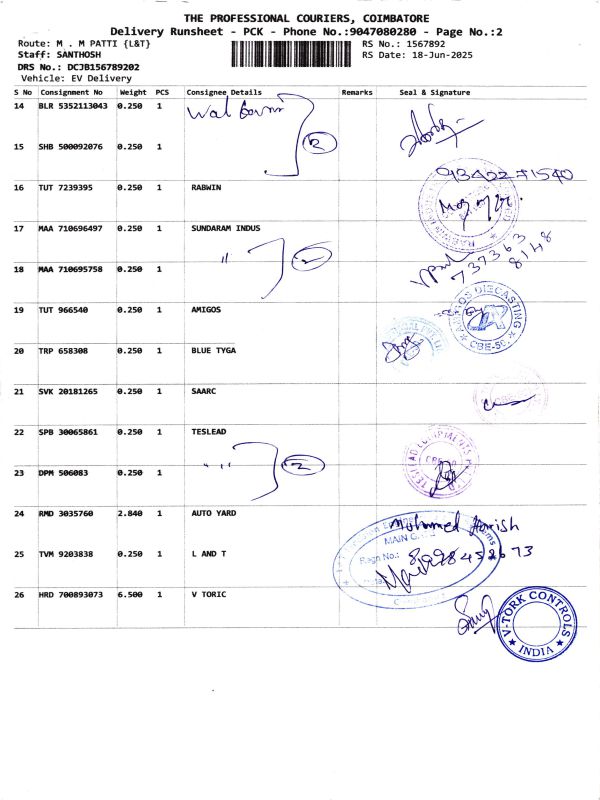 THE PROFESSIONAL COURIERS, COIMBATORE
Delivery Runsheet - PCK - Phone No.:9047080280 - Page No.:2
Route: M . M PATTI {L&T} RS No.: 1567892
Staff: SANTHOSH RS Date: 18-Jun-2025
DRS No.: DCJB156789202
Vehicle: EV Delivery
S No Consignment No Weight PCS Consignee Details Remarks Seal & Signature
14 BLR 5532113043 0.250 1
15 SHB 500092076 0.250 1
2
16 TUT 7239395 0.250 1 RABWIN
17 MAA 710696497 0.250 1 SUNDARAM INDUS
" 2
737363
8148
18 MAA 710695758 0.250 1
19 TUT 966540 0.250 1 AMIGOS
AMIGOS DIECASTING
20 TRP 658308 0.250 1 BLUE TYGA
21 SVK 20181265 0.250 1 SAARC
22 SPB 30065861 0.250 1 TESLEAD
" " 2
23 DPM 506083 0.250 1
24 RMD 3035760 2.840 1 AUTO YARD
Mohammed Harish
MAIN GATE
Regn No.:
25 TVM 9203838 0.250 1 L AND T
26 HRD 700893073 6.500 1 V TORIC
V-TORK CONTROLS
INDIA